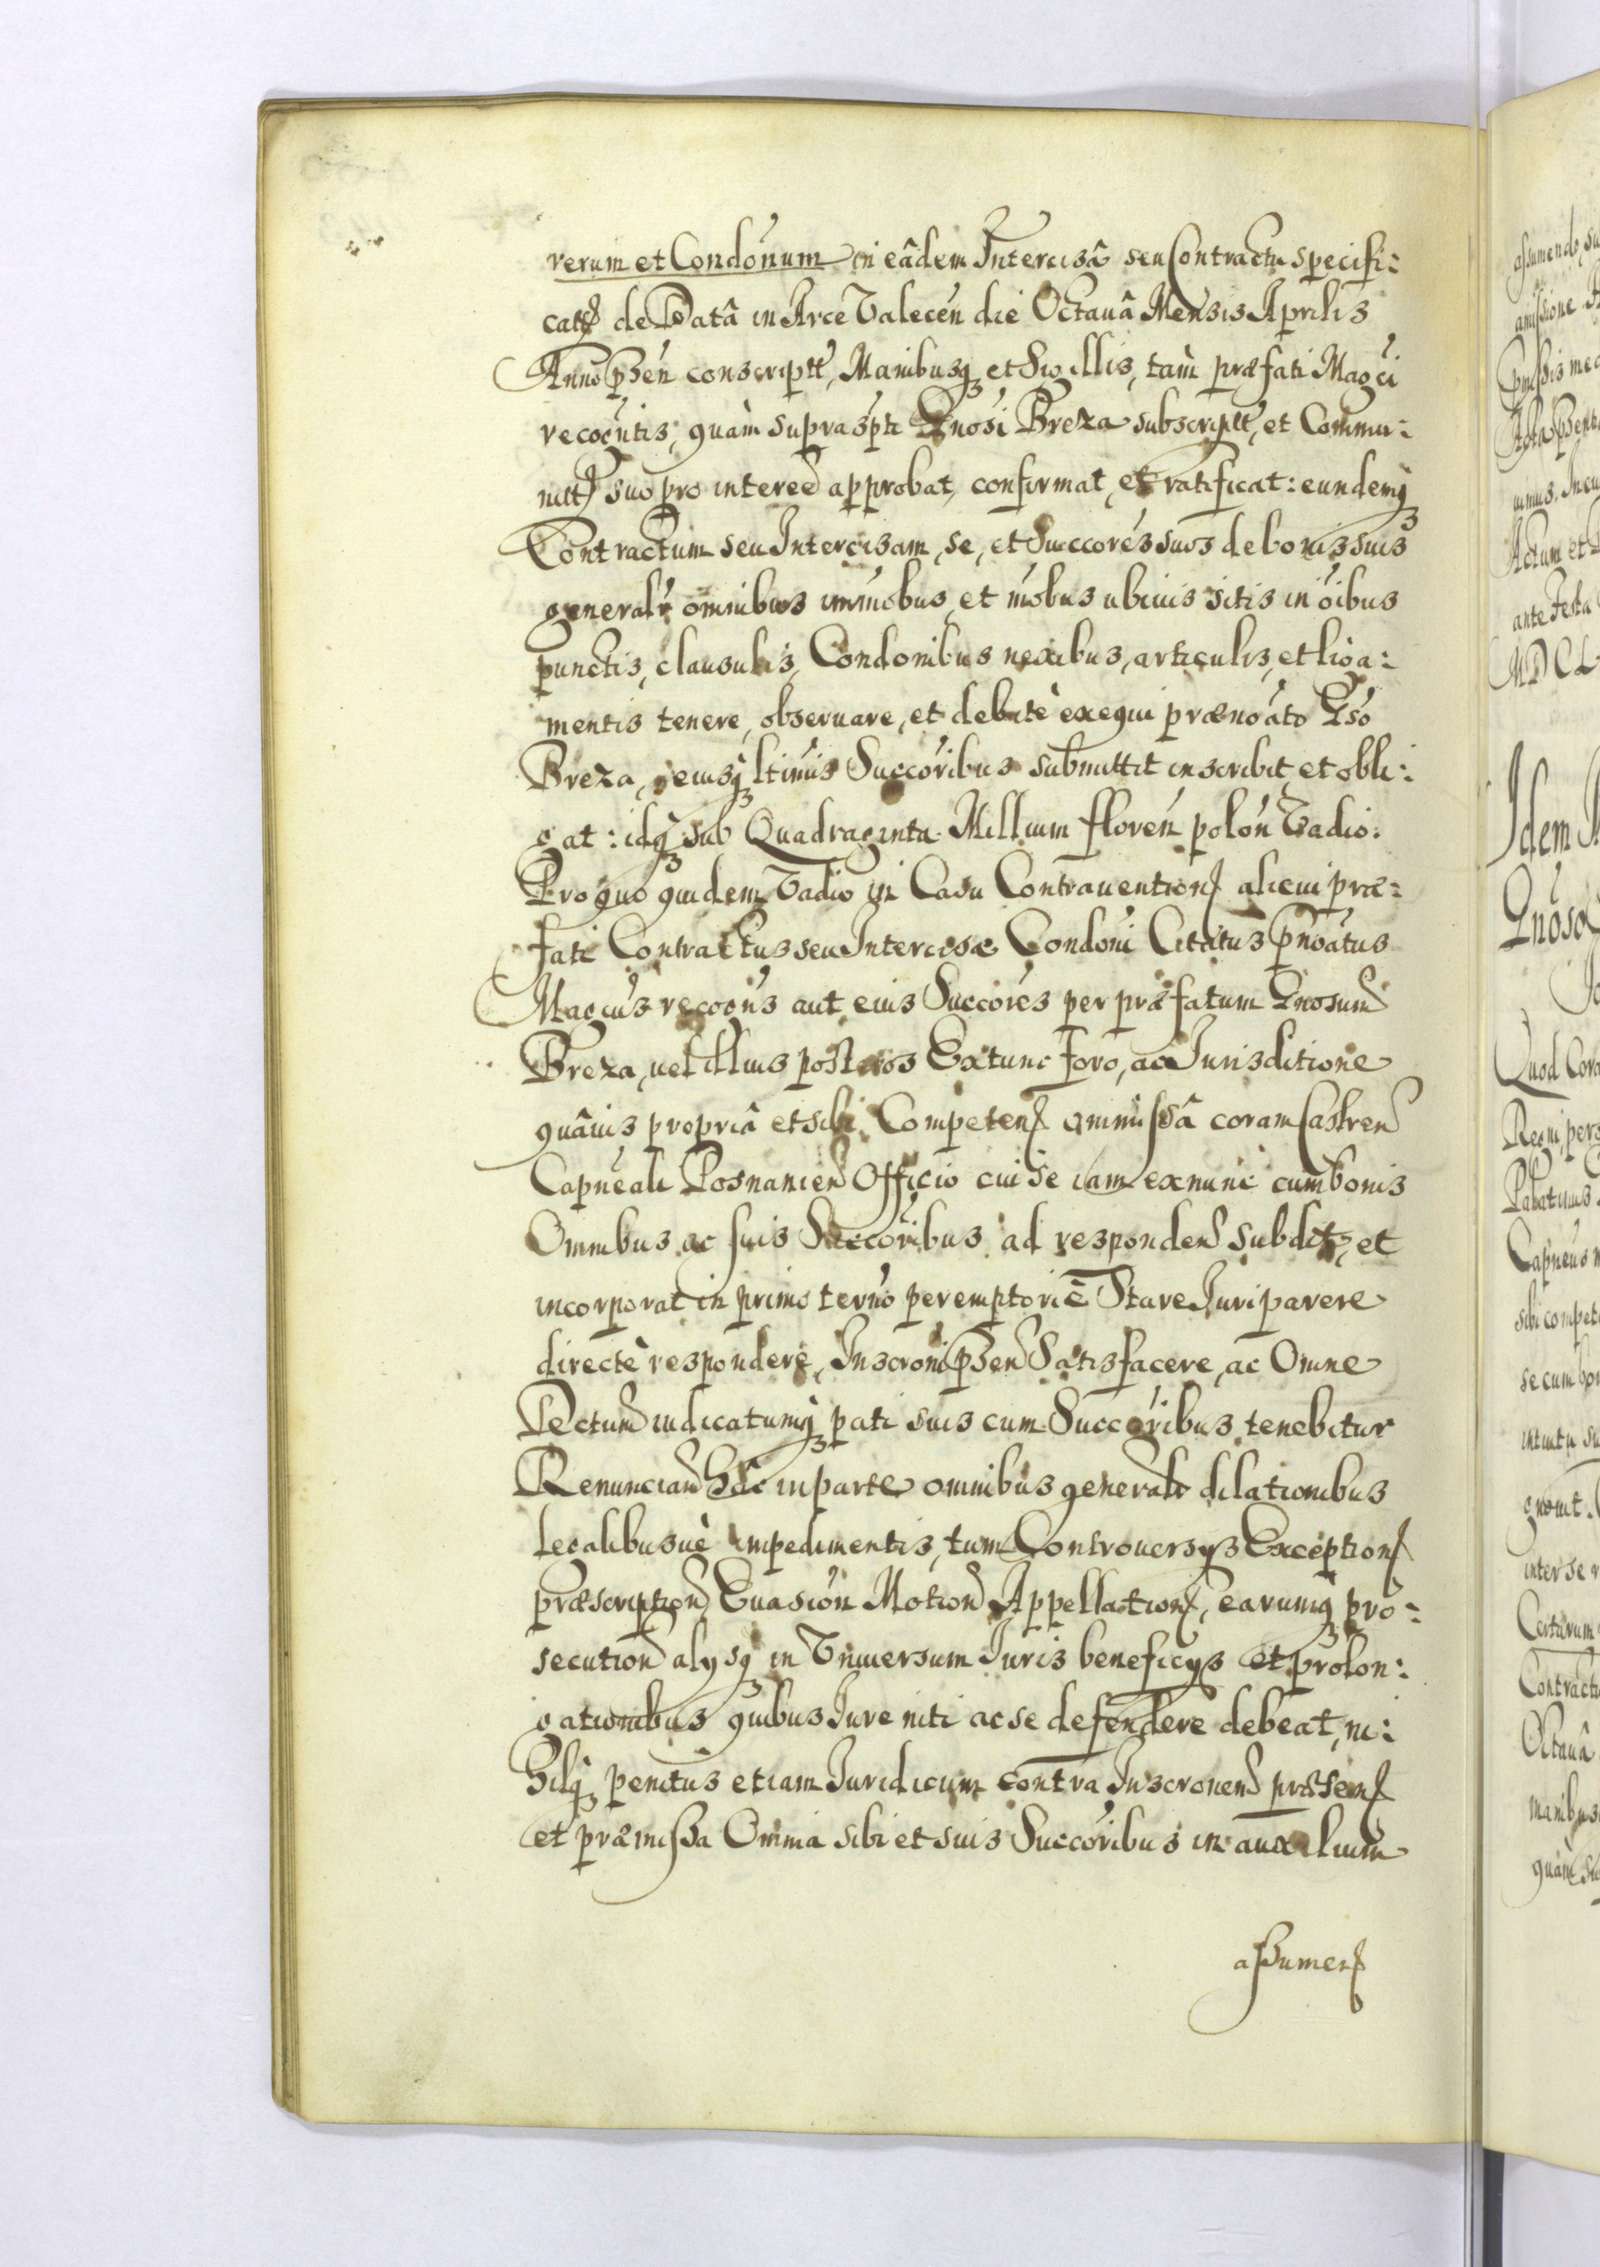 rerum et Condonum in eâdem Intercisâ seu Contractu specifi:
cat de Datâ in Arce Valecen die Octauâ Mensis Aprilis
Anno psen conscriptt, Manibusq et Sigillis, tam præfati Magci
recogntis, quàm suprasspti Gnosi Breza subscriptt, et Commu:
nitt suo pro interee approbat, confirmat, et ratificat: eundemq
Contractum seu Intercisam, se, et Succores suos de bonis suis
generalr omnibus immobus et mobus ubiuis sitis in oibus
punctis, clausulis, Condonibus nexibus, articulis, et liga:
mentis tenere, obseruare, et debitè exequi prænoato Gso
Breza, eiusq ltimis Succoribus submittit inscribit et obli:
gat: idq sub Quadraginta Millium floren polon Vadio:
Pro quo quidem Vadio in Casu Contrauention alicui præ:
fati Contractus seu Intercisæ Condoni Citatus pnoatus
Magcus recogns aut eius Succores per præfatum Gnosum
Breza, uel illius posteros Extunc foro, ac Jurisditione
quâuis propriâ et sibi Competen ommissâ coram Castren
Capneali Posnanien Officio cui se iam exnunc cum bonis
Omnibus ac suis Succoribus ad responden subdit, et
incorporat in primo terno peremptoriè Stare Juri parere
directè respondere, Inscroni psen Satisfacere, ac Omne
Lectum iudicatumq pati suis cum Succoribus tenebitur
Renuncian hâc in parte omnibus generalr dilationibus
legalibusuè impedimentis, tum Controuersijs Exception
præscription Euasion Motion Appellation, earumq pro:
secution alysq in Vniuersum Juris beneficijs et prolon:
gationibus quibus Jure niti ac se defendere debeat, ni:
hilq penitus etiam Juridicum contra Inscronem præsen
et præmissa Omnia sibi et suis Succoribus in auxilium
assumen